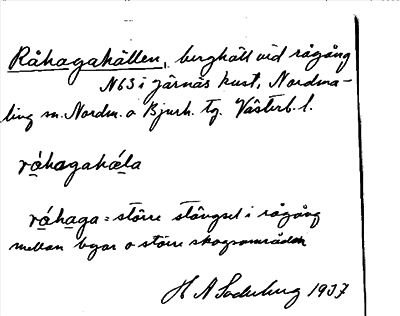 Råhagahällen, berghäll vid rågång
N63 i Järnäs kust, Nordma-
ling sn. Nordm. o Bjurh. tg. Västerb. l.
råhagahéla
råhaga = större stängsel i rågång
mellan byar o större skogsområden
H A Söderberg 1937